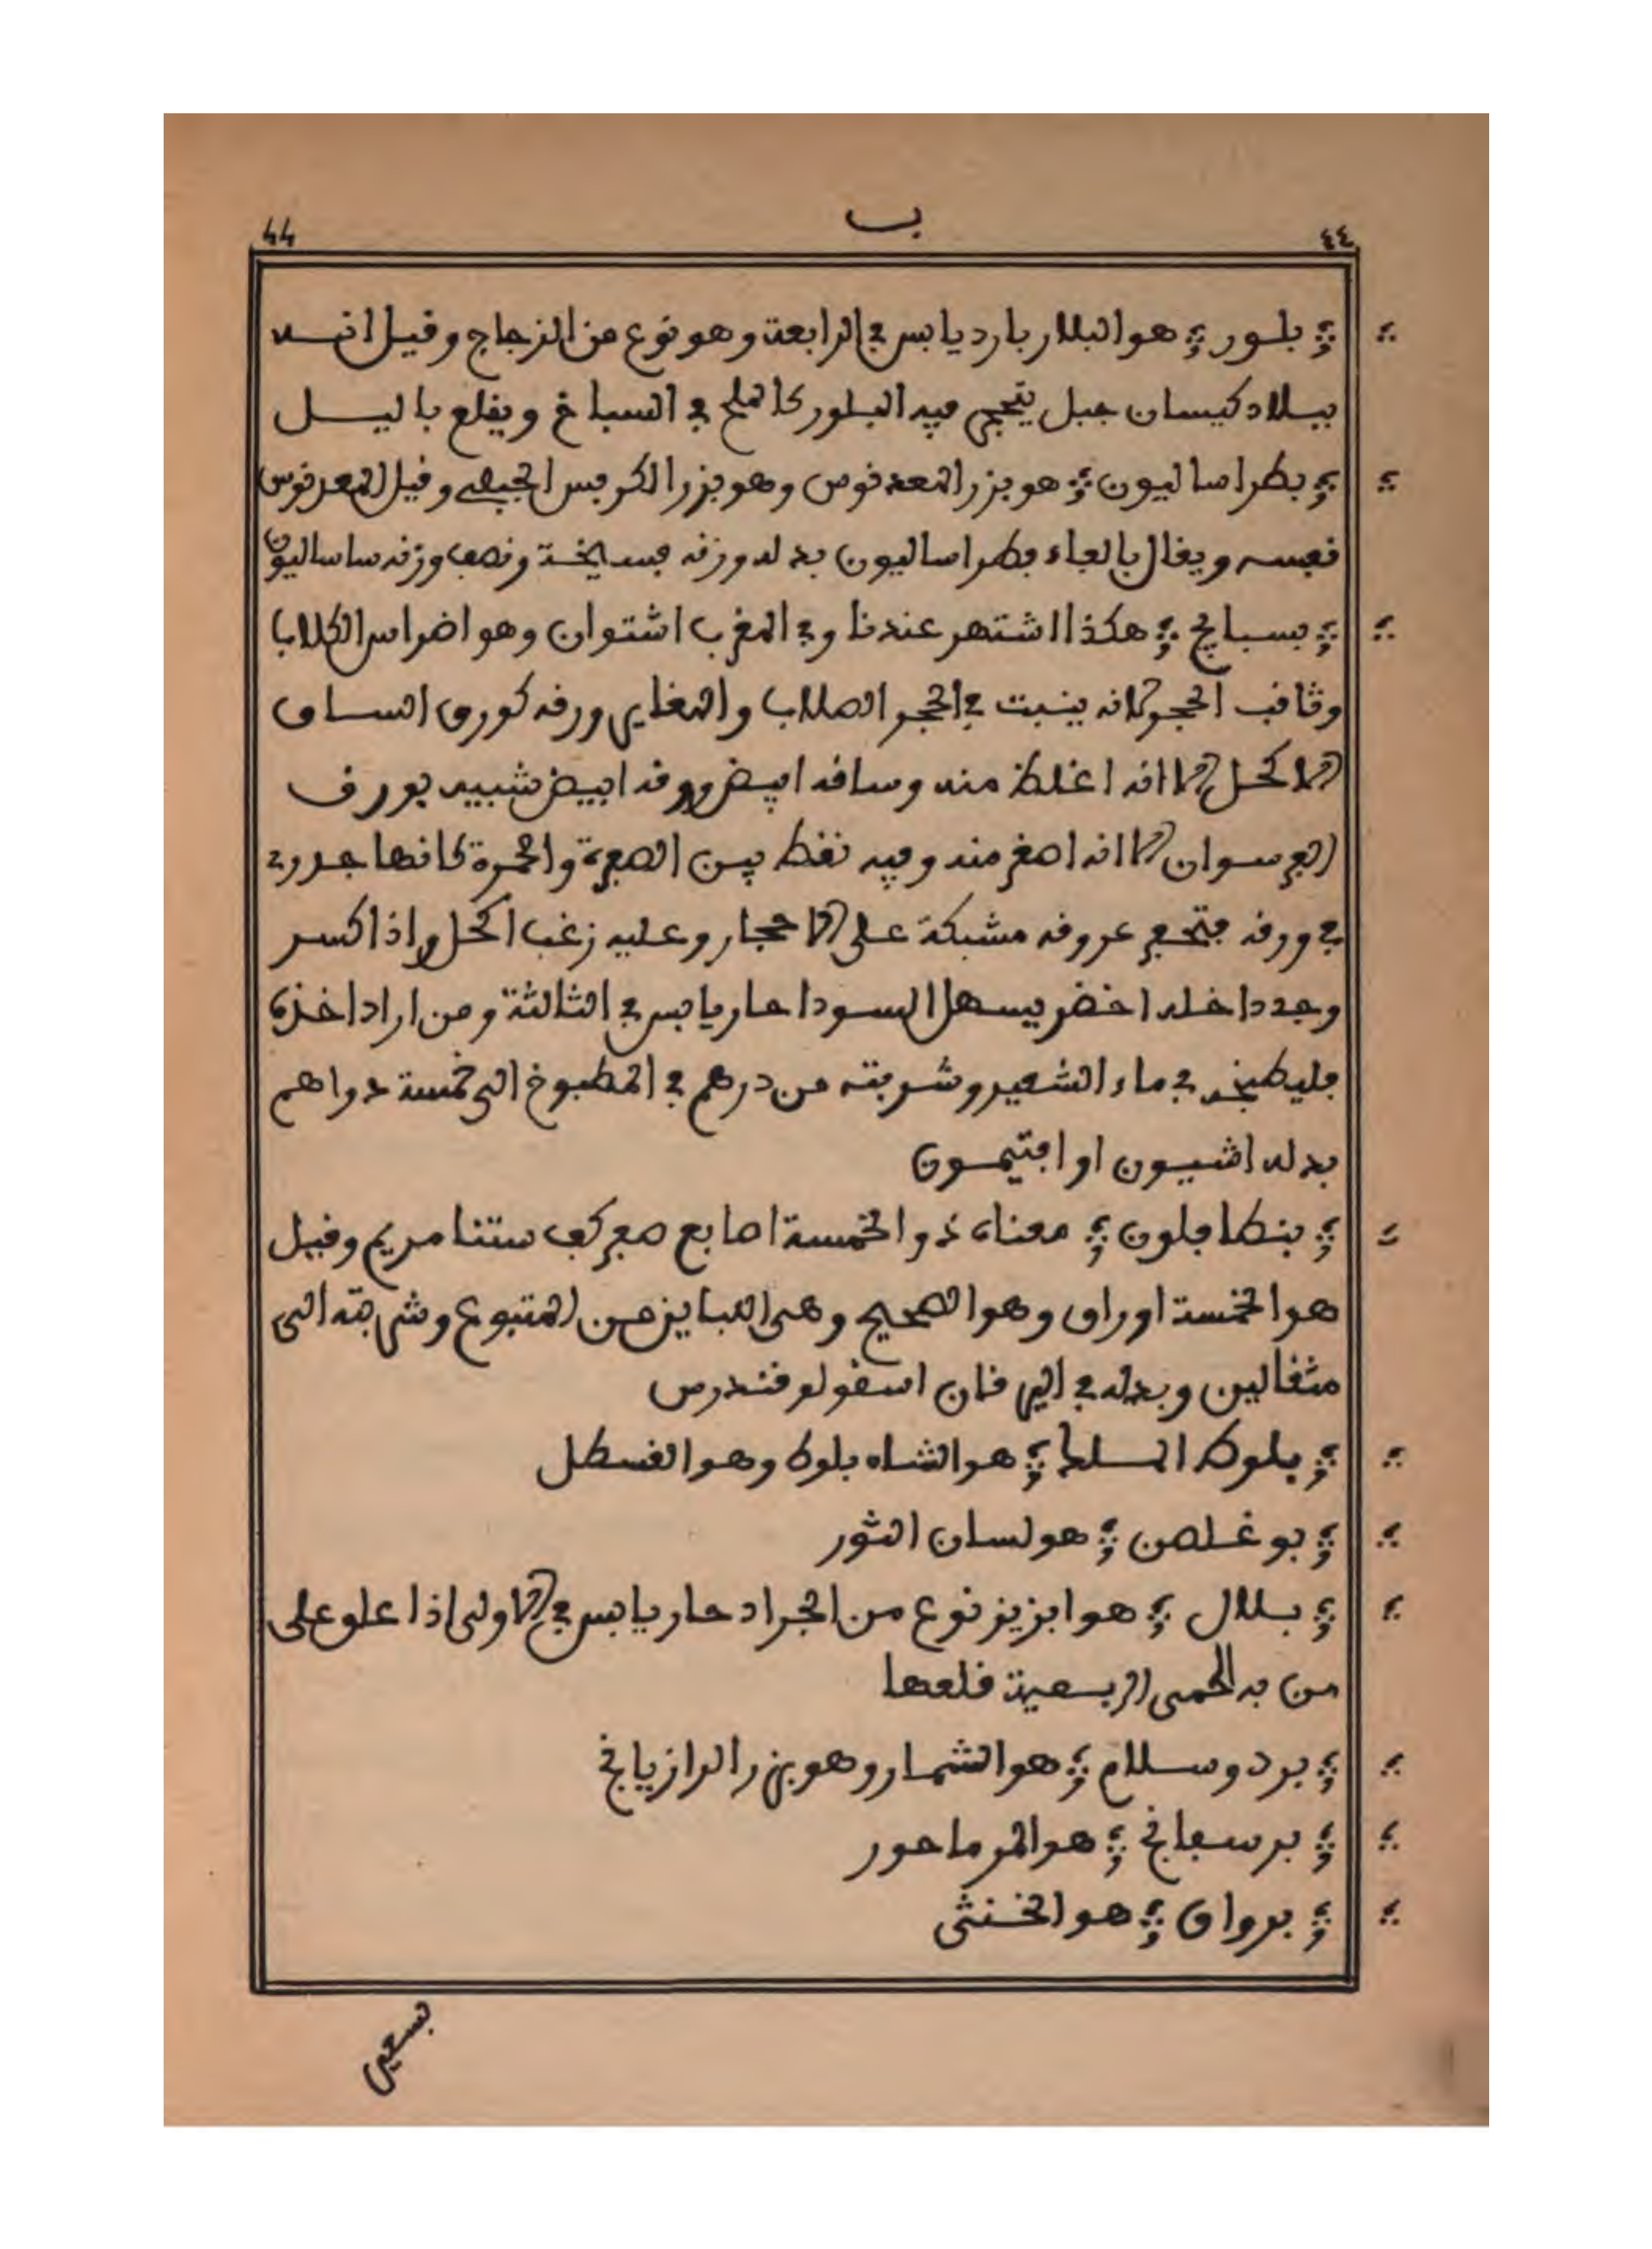 44 ب ٤٤
؞ بلور ؞ هو البلار بارد يابس في الرابعة وهو نوع من الزجاج وقيل انه
ببلاد كيسان جبل يتحجر فيه البلور كالملح في السباخ ويقلع باليل
؞ بطراساليون ؞ هو بزر المعدنوس وهو بزر الكرفس الجبلي وقيل المعدنوس
نفسه ويقال بالفاء فطراساليون بدله وزنه فسايخة ونصف وزنه ساساليون
؞ بسبايج ؞ هكذا اشتهر عندنا وفي المغرب اشتوان وهو اضراس الكلاب
وثاقب الحجر لانه ينبت في الحجر الصلاب والمغاير ورقه كورق الساق
الاكحل الا انه اغلظ منه وساقه ابيض وورقه ابيض شبيه بورق
العرسوان الا انه اصغر منه وفيه نقط بين الصفرة والحمرة كانها جدري
في ورقه فتجمع عروقه مشبكة على الاحجار وعليه زغب اكحل واذا كسر
وجد داخله اخضر يسهل السودا حار يابس في الثالثة ومن اراد اخذه
فليطبخه في ماء الشعير وشربته من درهم في المطبوخ الى خمسة دراهم
بدله اشيون او افتيمون
؞ بنطافلون ؞ معناه ذو الخمسة اصابع صفر كف ستنا مريم وقيل
هو الخمسة اوراق وهو الصحيح وهي اللبايز من المتبوع وشربته الى
مثقالين وبدله في اليرقان اسقولوقندرس
؞ بلوط الملك ؞ هو الشاه بلوط وهو القسطل
؞ بوغلصن ؞ هو لسان الثور
؞ بلال ؞ هو ابزيز نوع من الجراد حار يابس في الاولى اذا علق على
من به الحمى الربعية قلعها
؞ برد وسلام ؞ هو الشمار وهو بزر الرازيانج
؞ برسفانج ؞ هو المرماحور
؞ برواق ؞ هو الخنثى